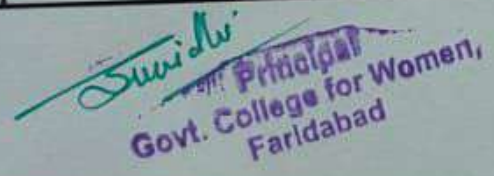 Sunidhi
Principal
Govt. College for Women,
Faridabad